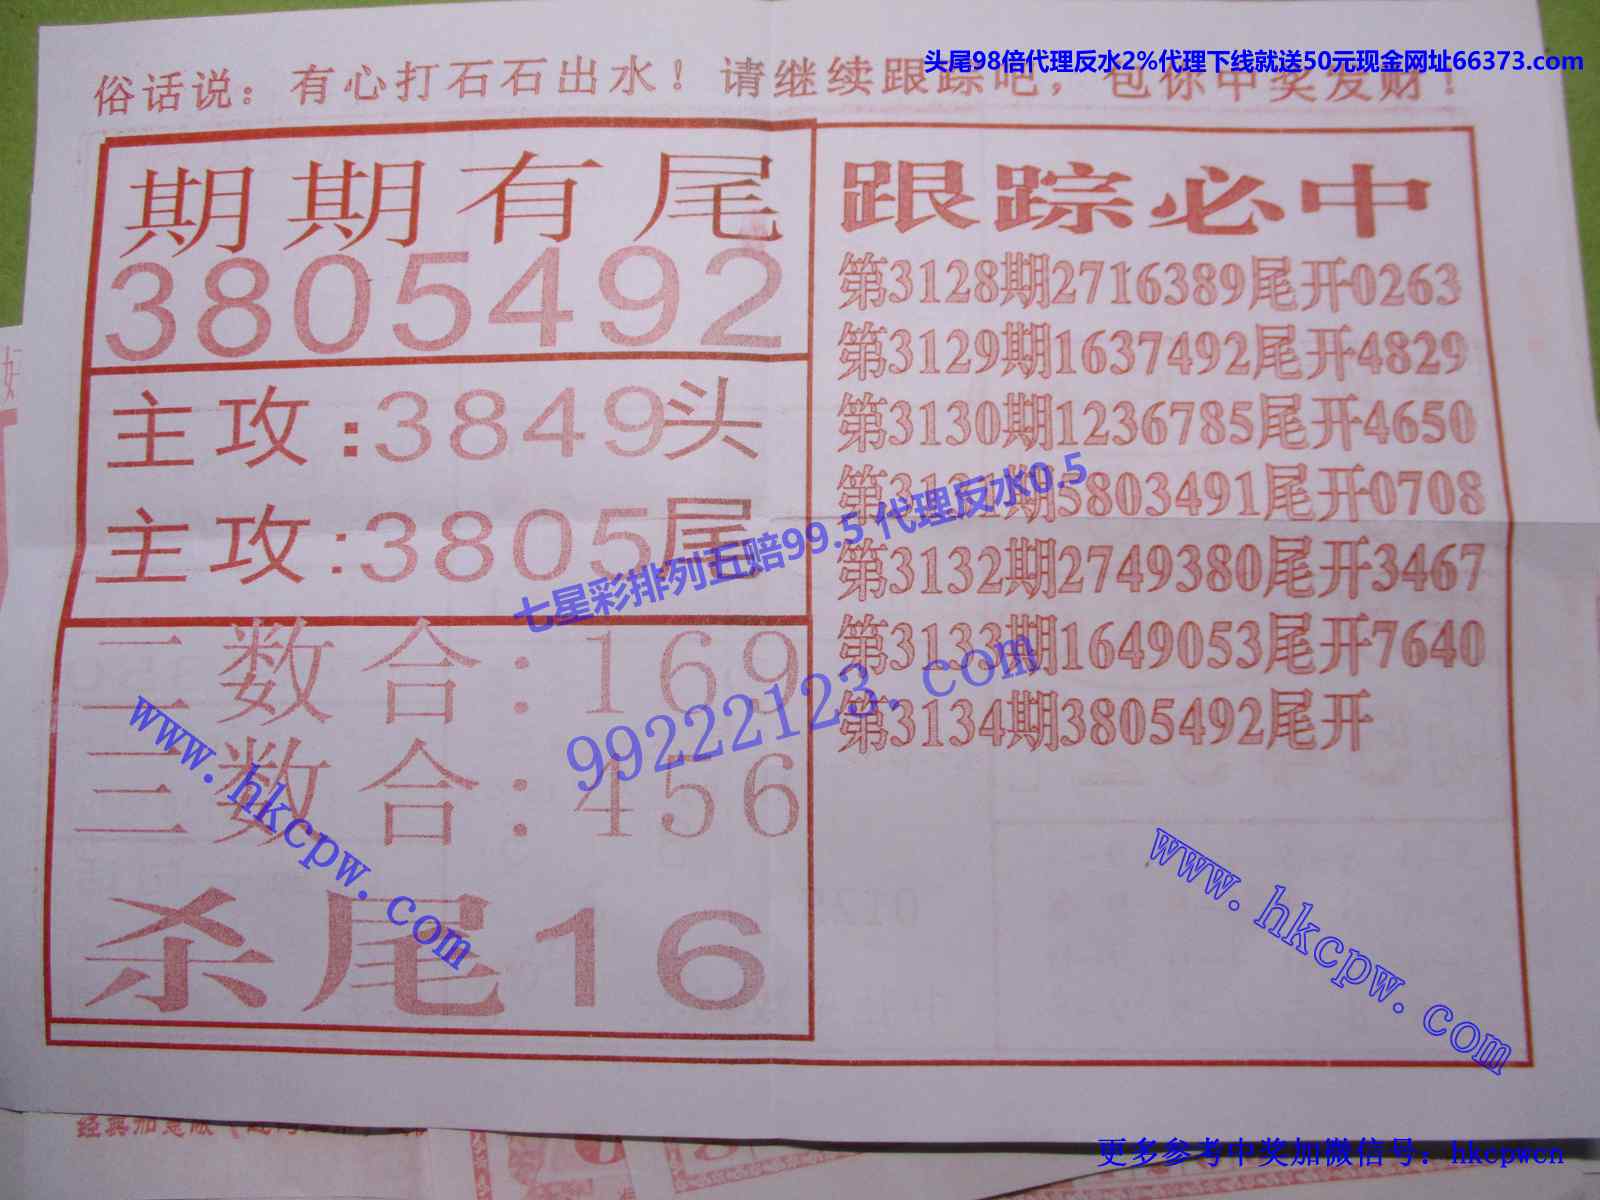 头尾98倍代理反水2%代理下线就送50元现金网址66373.com
俗话说：有心打石石出水！请继续跟踪吧，包你中奖发财！
期期有尾
3805492
主攻:3849头
主攻:3805尾
二数合:169
三数合:456
杀尾16
跟踪必中
第3128期2716389尾开0263
第3129期1637492尾开4829
第3130期1236785尾开4650
第3131期5803491尾开0708
第3132期2749380尾开3467
第3133期1649053尾开7640
第3134期3805492尾开
七星彩排列五赔99.5 代理反水0.5
99222123.com
www.hkcpw.com
www.hkcpw.com
更多参考中奖加微信号：hkcpwcn